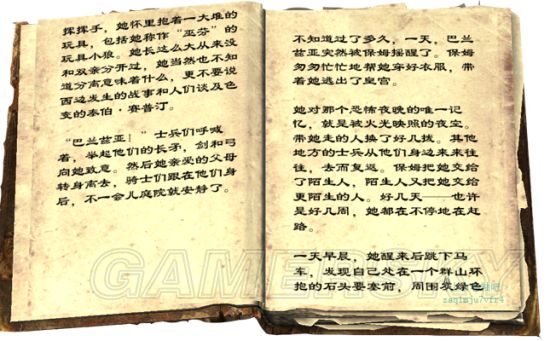 挥挥手，她怀里抱着一大堆的
玩具，包括她称作“亚芬”的
玩具小狼。她长这么大从来没
和双亲分开过，她当然也不知
道分离意味着什么，更不要说
西边发生的战事和人们谈及色
变的泰伯·赛普汀。
“巴兰兹亚！”士兵们呼喊
着，举起他们的长矛，剑和弓
向她致意。然后她亲爱的父母
转身离去，骑士们跟在他们身
后，不一会儿庭院就安静了。
不知道过了多久，一天，巴兰
兹亚突然被保姆摇醒了。保姆
匆匆忙忙地帮她穿好衣服，带
着她逃出了皇宫。
她对那个恐怖夜晚的唯一记
忆，就是被火光映照的夜空。
带她走的人换了好几拨。其他
地方的士兵从他们身边来来往
往，去而复返。保姆把她交给
了陌生人，陌生人又把她交给
更陌生的人。好几天——也许
是好几周，她都在不停地在赶
路。
一天早晨，她醒来后跳下马
车，发现自己处在一个群山环
抱的石头要塞前，周围灰绿色
GAMERSKY
zaqtmju7vfr4